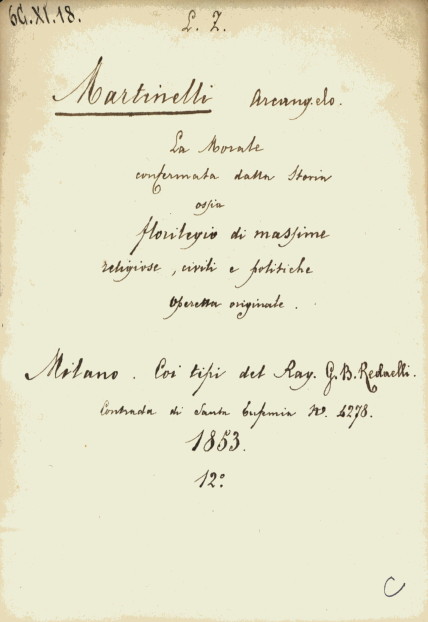 6G.XI.18.
L. Z.
Martinelli Arcangelo.
La Morale
confermata dalla Storia
ossia
florilegio di massime
religiose, civili e politiche
Operetta originale.
Milano. Coi tipi del Rag. G.B. Redaelli.
Contrada di Santa Eufemia N.° 4278.
1853.
12°
C